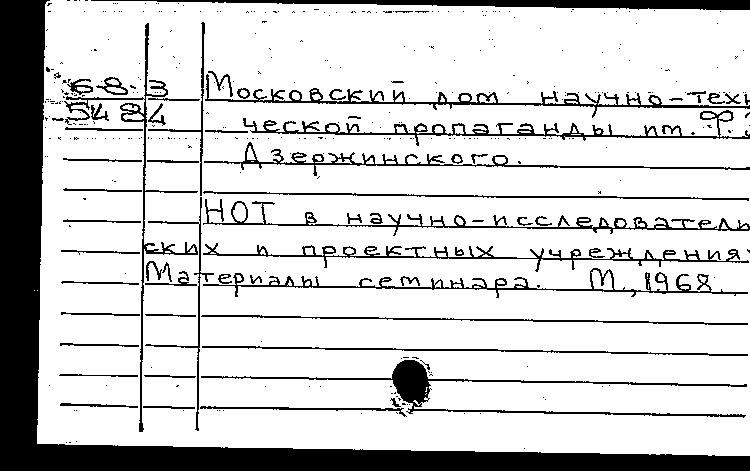 68-3 Московский дом научно-техн
5484 ческой пропаганды им. Ф.Э
Дзержинского.
НОТ в научно-исследователь
ских и проектных учреждениях
Материалы семинара. М., 1968.